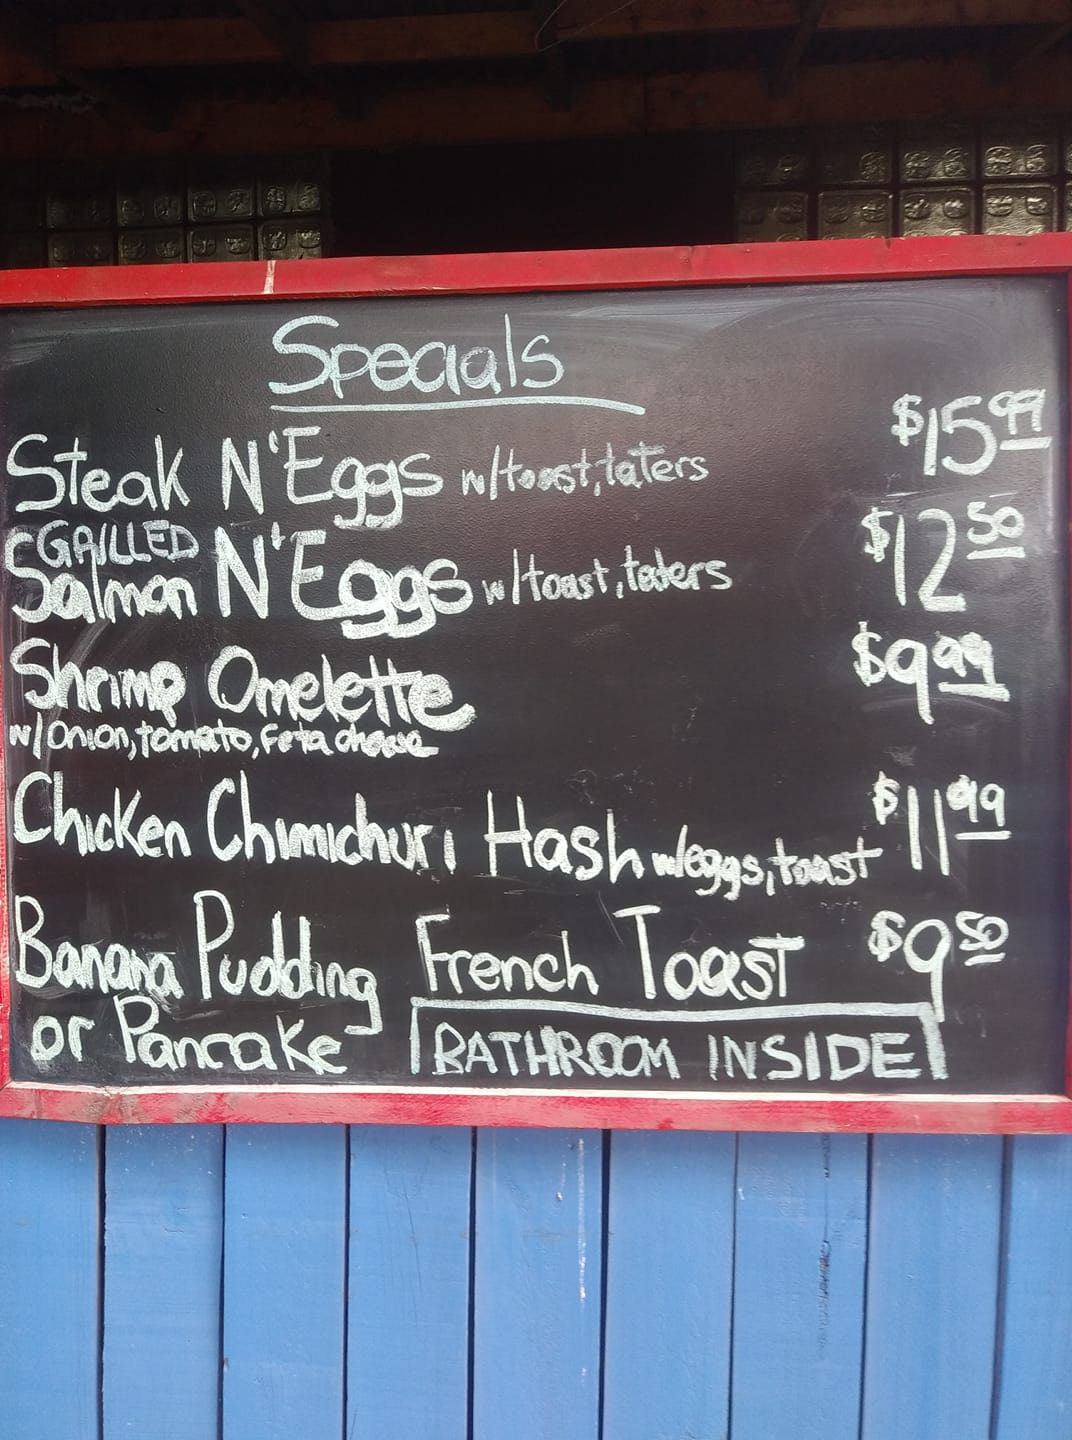 Specials
Steak N'Eggs w/toast, taters $15.99
GRILLED
Salmon N'Eggs w/toast, taters $12.50
Shrimp Omelette $9.99
w/onion, tomato, feta cheese
Chicken Chimichuri Hash w/eggs, toast $11.99
Banana Pudding French Toast $9.50
or Pancake
BATHROOM INSIDE